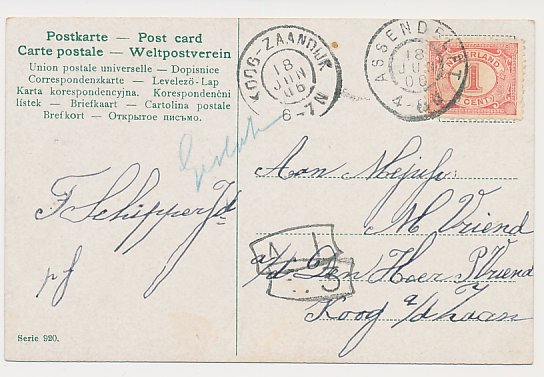 Postkarte — Post card
Carte postale — Weltpostverein
Union postale universelle — Dopisnice
Correspondenzkarte — Levelező-Lap
Karta korespondencyjna. Korespondenčni
lístek — Briefkaart — Cartolina postale
Brefkort — Открытое письмо.
KOOG-ZAANDIJK
18
JUN
06
6-7 N
ASSENDELFT
18
JUN
06
4-8 N
NEDERLAND
1
CENT
F Schipper Jd
pf
Aan Mejufr.
M Vriend
a/d Den Heer P Vriend
Koog a/d Zaan
Serie 920.